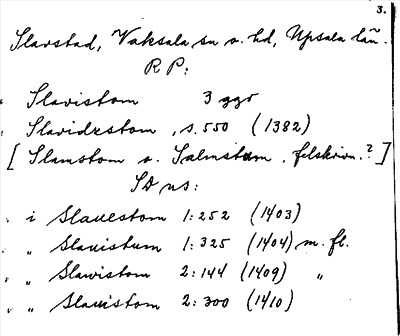 3.
Slavstad, Vaksala sn o. hd, Upsala län.
R P:
Slavistom 3 ggr
Slavidzstom, s. 550 (1382)
[ Slamstom o. Salmstum, felskrivn.? ]
SD ns:
i Slauestom 1:252 (1403)
" Slauistum 1:325 (1404) m. fl.
" Slawistom 2:144 (1409) "
" Slauistom 2:300 (1410)